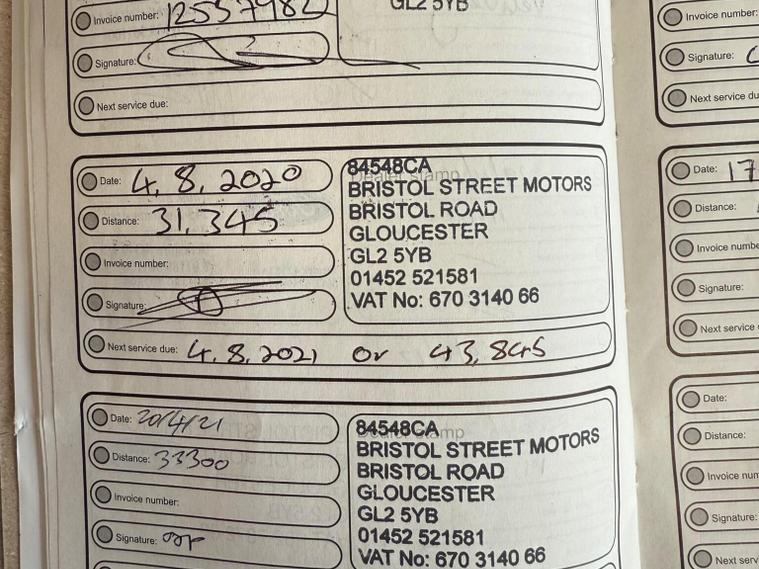 Invoice number: 12557982
GL2 5YB
Signature:
Next service due:
Date: 4.8.2020
Distance: 31,345
Invoice number:
Signature:
Dealer Stamp
84548CA
BRISTOL STREET MOTORS
BRISTOL ROAD
GLOUCESTER
GL2 5YB
01452 521581
VAT No: 670 3140 66
Next service due: 4.8.2021 or 43,845
Date: 20/4/21
Distance: 33300
Invoice number:
Signature:
Dealer Stamp
84548CA
BRISTOL STREET MOTORS
BRISTOL ROAD
GLOUCESTER
GL2 5YB
01452 521581
VAT No: 670 3140 66
Invoice number:
Signature:
Next service du
Date: 17
Distance:
Invoice numbe
Signature:
Next service
Date:
Distance:
Invoice num
Signature:
Next serv